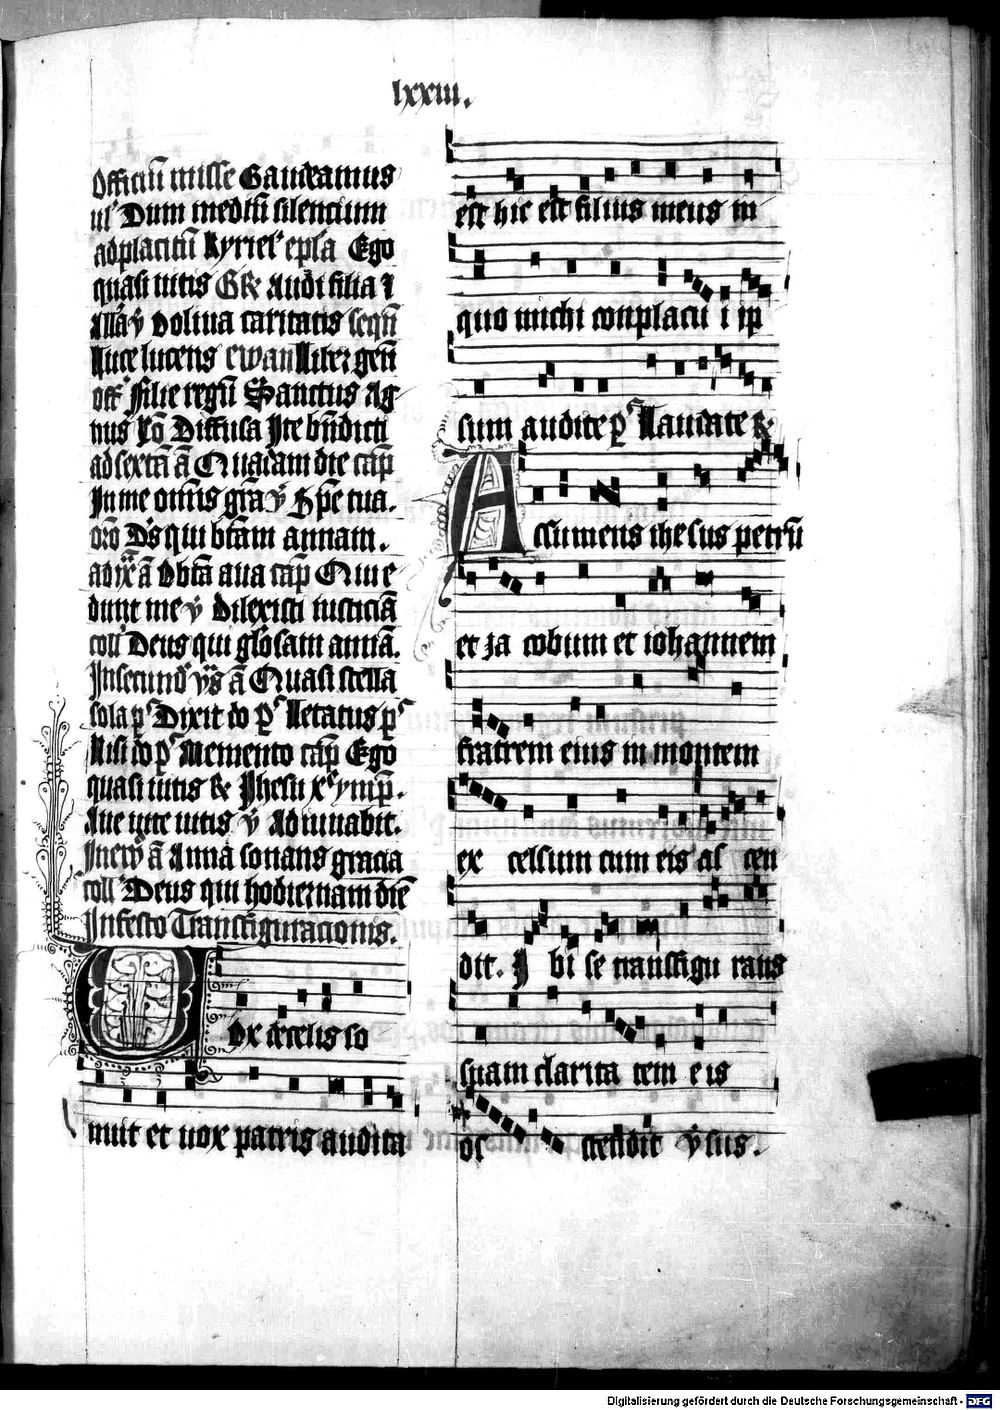 lxxiii.
Officiū misse Gaudeamus
ul' Dum mediū silencium
ad placitū kyriel' epl̄a Ego
quasi uitis GR Audi filia
All'a ꝟ O oliua caritatis seqn̄
Luce lucens ewan Liber gen̄
off' Filie regū Sanctus Ag
nus Cō Diffusa Ite bn̄dicti
ad sextā ā Quadam die cap̄
In me om̄is gr̄a ꝟ Spe tua.
oro D's qui btām annam.
ad ix ā O btā aua cap̄ Qui e
dunt me ꝟ Dilexisti iusticiā
coll' Deus qui gl'osam annā.
In secund' vp̄s ā Quasi stella
sola p̄s Dixit do p̄s Letatus p̄s
Nisi do p̄s Memento cap̄ Ego
quasi uitis R Jhesu xp̄e ymp̄.
Aue uite uitis ꝟ Adiuuabit.
In ew̄ ā Anna sonans gracia
coll' Deus qui hodiernam diē
In festo Transfiguracionis.
Vox de celis so
nuit et uox patris audita
est hic est filius meus in
quo michi conplacu i ip
sum audite p̄s Laudate R
Assumens ihesus petrū
et ja cobum et iohannem
fratrem eius in montem
ex celsum cum eis as cen
dit. I bi se transfigu rans
suam clarita tem eis
os tendit ysus.
Digitalisierung gefördert durch die Deutsche Forschungsgemeinschaft - DFG